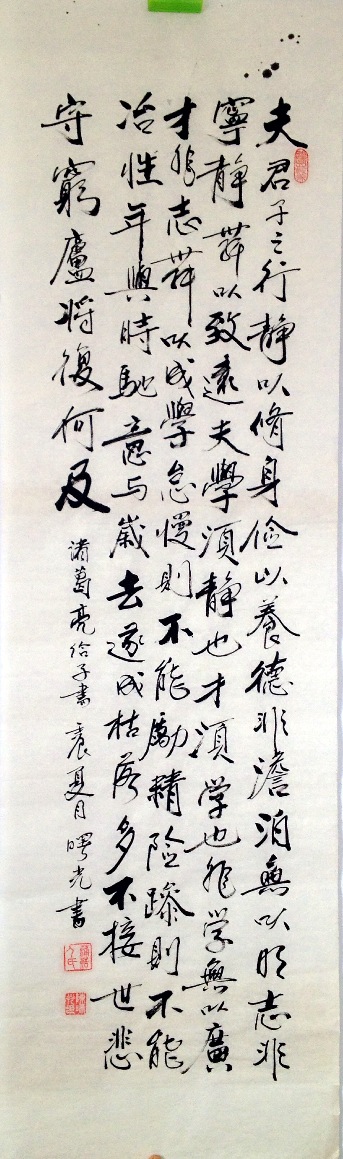 夫君子之行静以脩身俭以養德非澹泊無以明志非
寧静無以致遠夫學須静也才须学也非学無以廣
才非志無以成學怠慢則不能勵精险躁則不能
冶性年與時馳意与歲去遂成枯落多不接世悲
守窮廬将復何及
诸葛亮给子書 夏月 曙光書